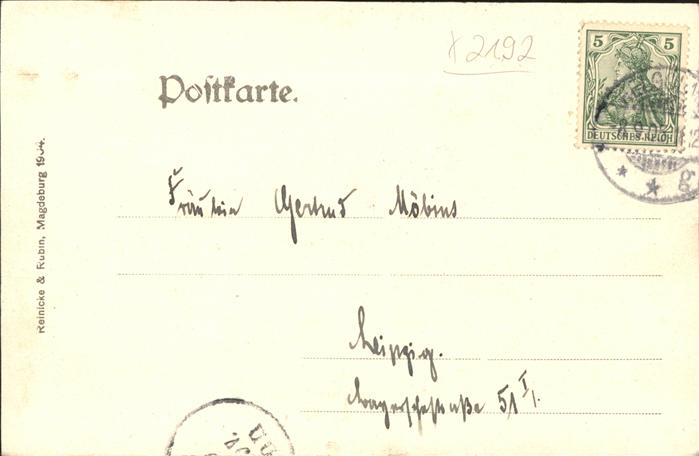 x 2192
5 5
DEUTSCHES REICH
Postkarte.
Reinicke & Rubin, Magdeburg 1904.
Fräulein Gertrud Möbius
Leipzig.
51 I.